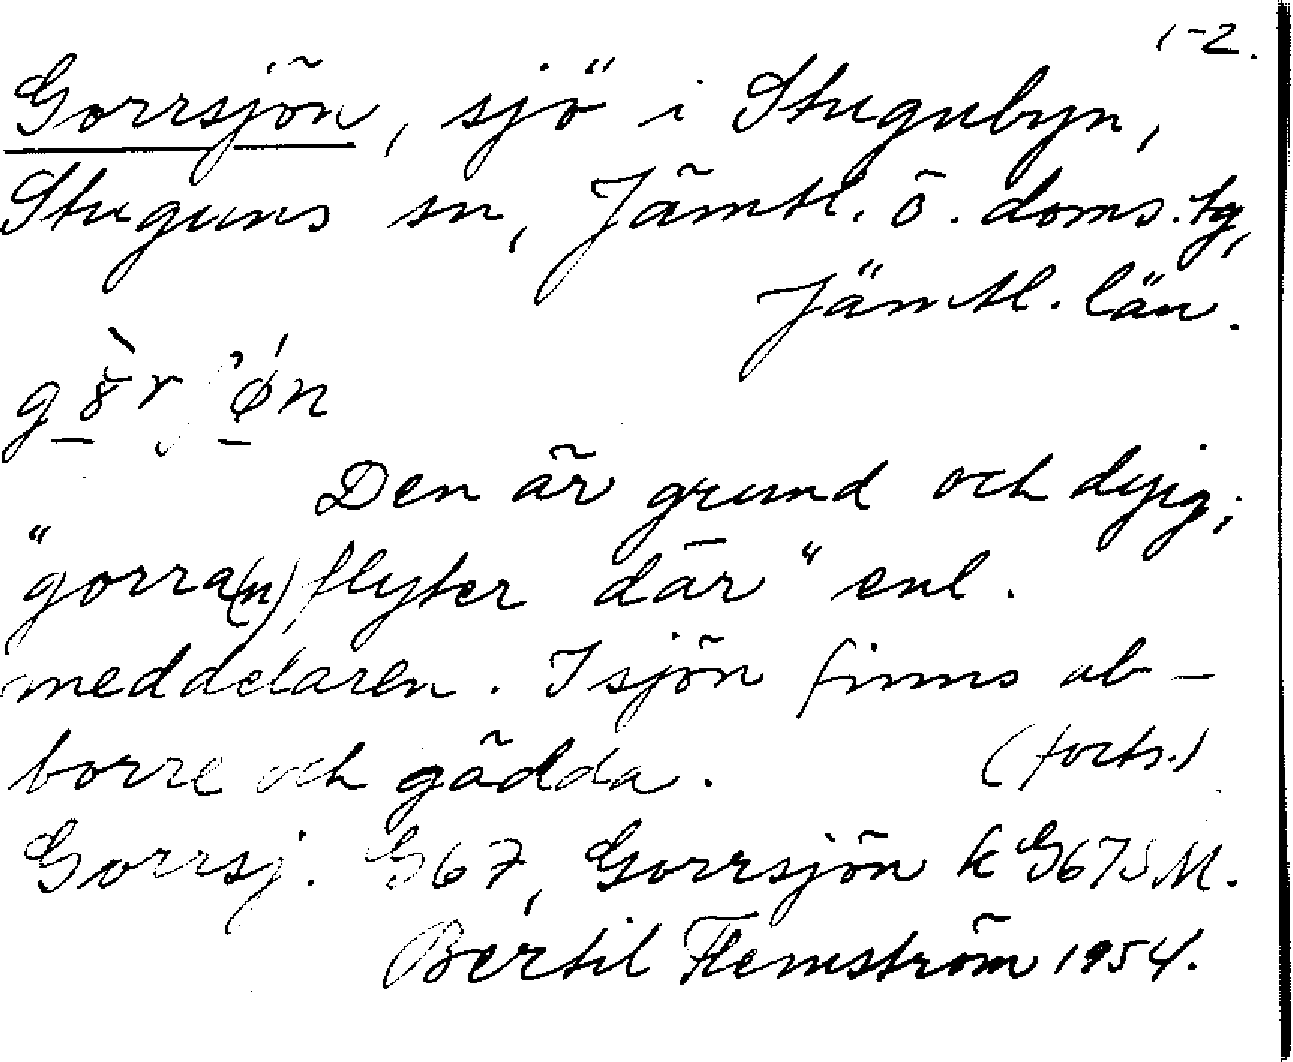 1-2.
Gorrsjön, sjö i Stugubyn,
Stuguns sn, Jämtl. ö. doms. tg,
Jämtl. län.
Den är grund och dyig;
"gorra(n) flyter där" enl.
meddelaren. I sjön finns ab-
borre och gädda. (forts.)
Gorrsj. G67, Gorrsjön k G67SM.
Bertil Flemström 1954.